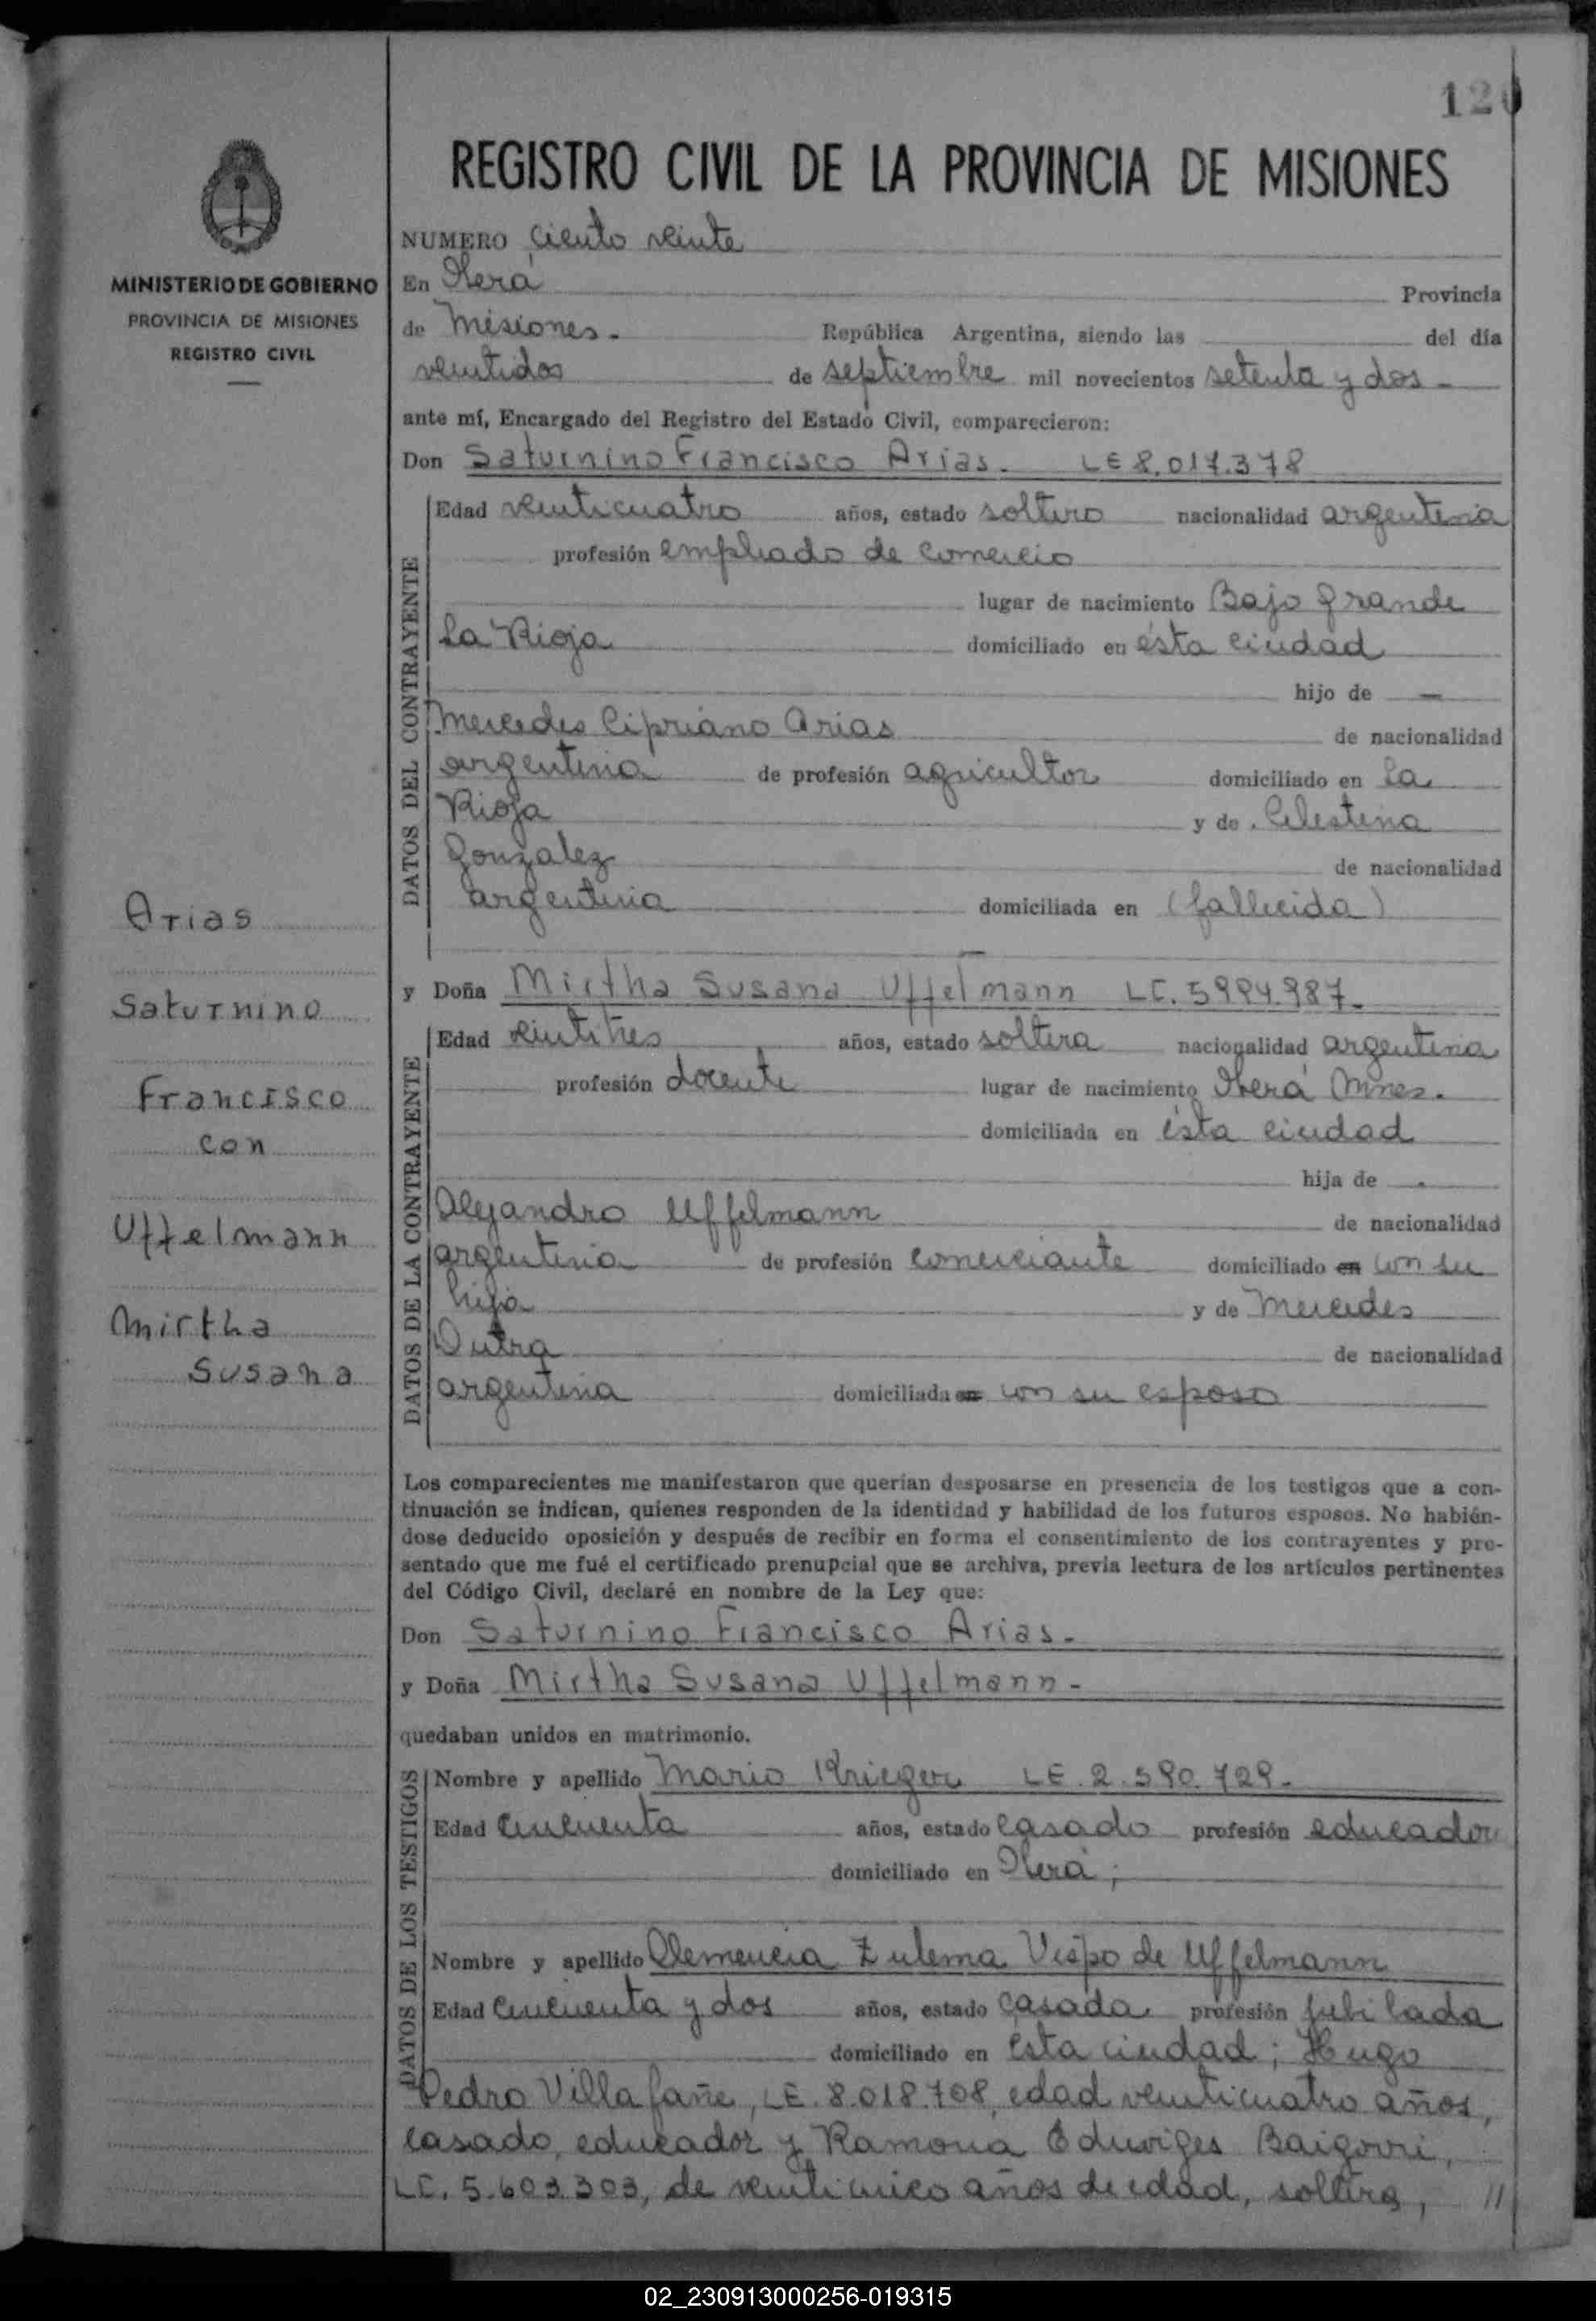 120
REGISTRO CIVIL DE LA PROVINCIA DE MISIONES
MINISTERIO DE GOBIERNO
PROVINCIA DE MISIONES
REGISTRO CIVIL
NUMERO ciento veinte
En Oberá Provincia
de Misiones.- República Argentina, siendo las del día
veintidos de septiembre mil novecientos setenta y dos -
ante mí, Encargado del Registro del Estado Civil, comparecieron:
Don Saturnino Francisco Arias. LE 8.017.378
DATOS DEL CONTRAYENTE
Edad veinticuatro años, estado soltero nacionalidad argentina
profesión empleado de comercio
lugar de nacimiento Bajo Grande
La Rioja domiciliado en ésta ciudad
hijo de —
Mercedes Cipriano Arias de nacionalidad
argentina de profesión agricultor domiciliado en La
Rioja y de Celestina
Gonzalez de nacionalidad
argentina domiciliada en (fallecida)
y Doña Mirtha Susana Uffelmann LC. 5994.987-
DATOS DE LA CONTRAYENTE
Edad veintitres años, estado soltera nacionalidad argentina
profesión docente lugar de nacimiento Oberá Mnes.
domiciliada en ésta ciudad
hija de -
Alejandro Uffelmann de nacionalidad
argentina de profesión comerciante domiciliado en con su
hija y de Mercedes
Dutra de nacionalidad
argentina domiciliada en con su esposo
Arias
Saturnino
Francisco
con
Uffelmann
Mirtha
Susana
Los comparecientes me manifestaron que querían desposarse en presencia de los testigos que a con-
tinuación se indican, quienes responden de la identidad y habilidad de los futuros esposos. No habién-
dose deducido oposición y después de recibir en forma el consentimiento de los contrayentes y pre-
sentado que me fué el certificado prenupcial que se archiva, previa lectura de los artículos pertinentes
del Código Civil, declaré en nombre de la Ley que:
Don Saturnino Francisco Arias.-
y Doña Mirtha Susana Uffelmann -
quedaban unidos en matrimonio.
DATOS DE LOS TESTIGOS
Nombre y apellido Mario Krieger LE. 2.590.729-
Edad cincuenta años, estado casado profesión educador
domiciliado en Oberá;
Nombre y apellido Clemencia Zulema Vispo de Uffelmann
Edad cincuenta y dos años, estado casada profesión jubilada
domiciliado en ésta ciudad; Hugo
Pedro Villafañe, LE. 8.018.708, edad veinticuatro años,
casado, educador y Ramona Eduviges Baigorri,
LC. 5.603.303, de veinticinco años de edad, soltera, //
02_230913000256-019315